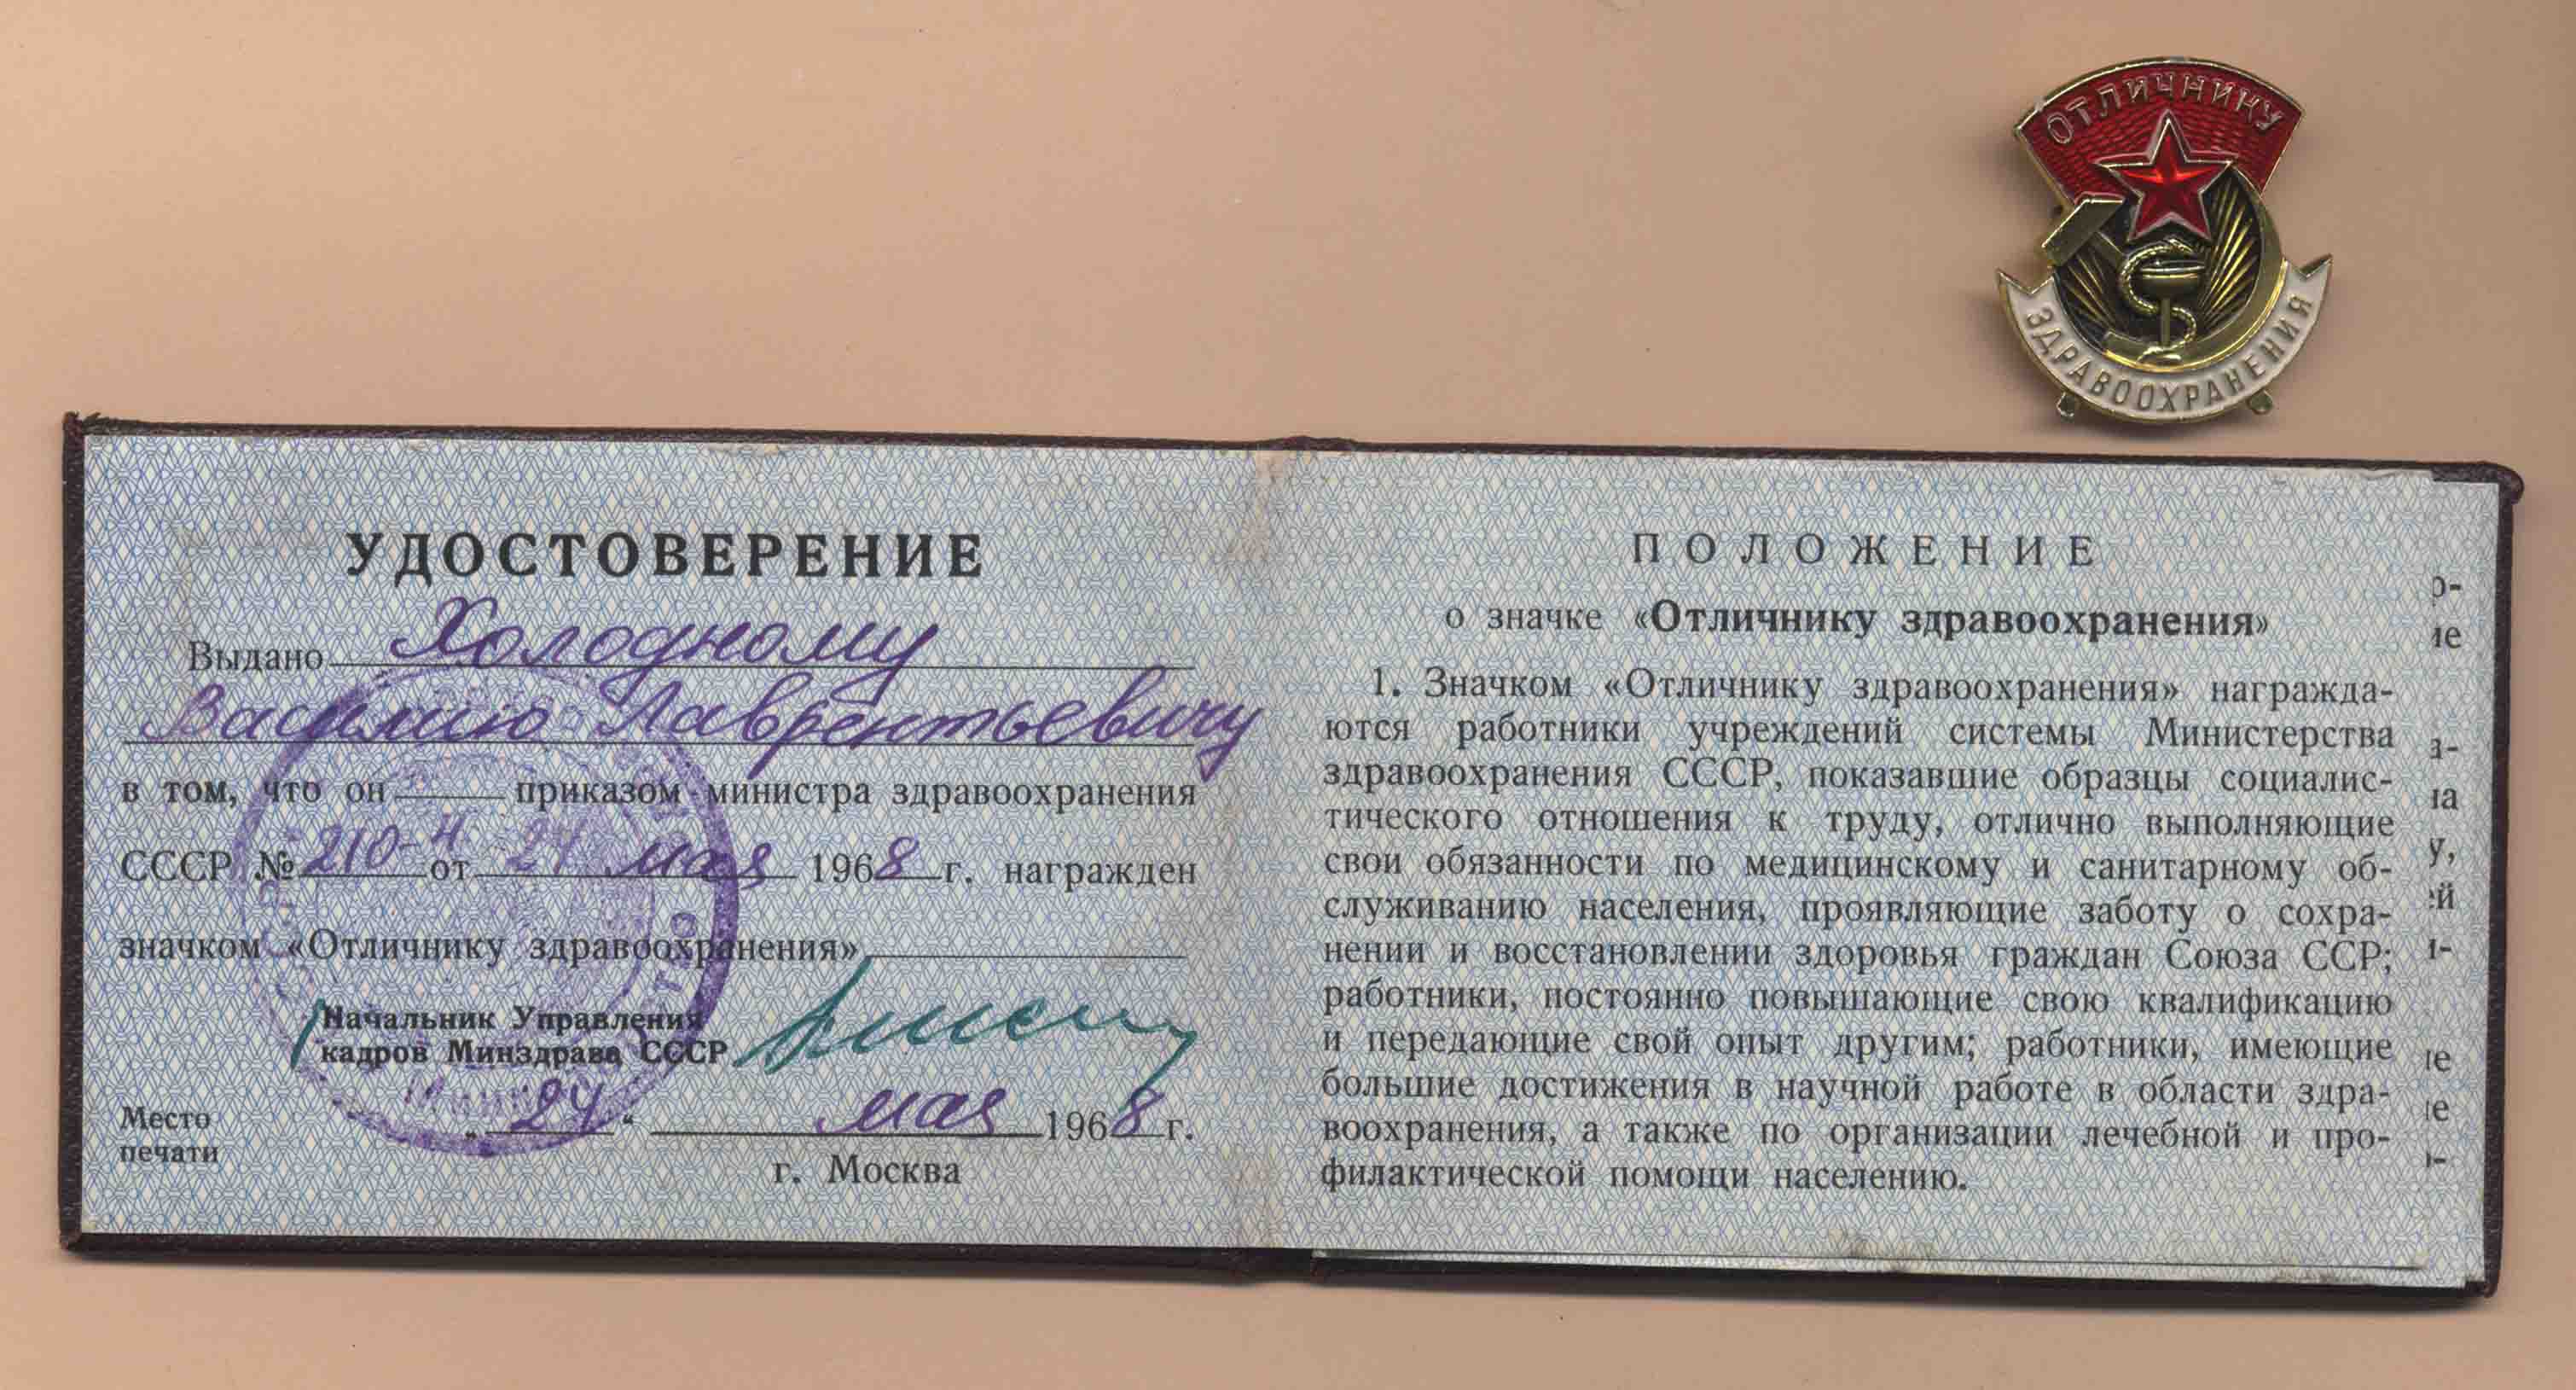 ОТЛИЧНИКУ
ЗДРАВООХРАНЕНИЯ
УДОСТОВЕРЕНИЕ
Выдано Холодному
Василию Лаврентьевичу
в том, что он приказом министра здравоохранения
СССР № 210-н от 24 мая 1968 г. награжден
значком «Отличнику здравоохранения»
Начальник Управления
кадров Минздрава СССР
Место
печати
„ 24 “ мая 1968 г.
г. Москва
ПОЛОЖЕНИЕ
о значке «Отличнику здравоохранения»
1. Значком «Отличнику здравоохранения» награжда-
ются работники учреждений системы Министерства
здравоохранения СССР, показавшие образцы социалис-
тического отношения к труду, отлично выполняющие
свои обязанности по медицинскому и санитарному об-
служиванию населения, проявляющие заботу о сохра-
нении и восстановлении здоровья граждан Союза ССР;
работники, постоянно повышающие свою квалификацию
и передающие свой опыт другим; работники, имеющие
большие достижения в научной работе в области здра-
воохранения, а также по организации лечебной и про-
филактической помощи населению.